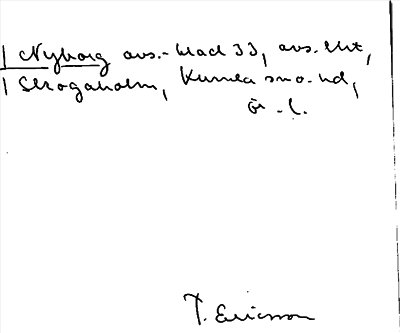 Nyborg avs.-blad 33, avs. lht,
Skogaholm, Kumla sn o. hd,
Ör. l.
T. Ericsson